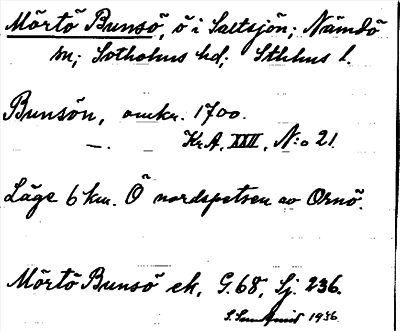 Mörtö Bunsö, ö i Saltsjön; Nämdö
sn; Sotholms hd; Sthlms l.
Bunsön, omkr. 1700.
—. Kr.A, XXII, N:o 21.
Läge 6 km. Ö nordspetsen av Ornö.
Mörtö Bunsö ek, G.68, Sj. 236.
1936